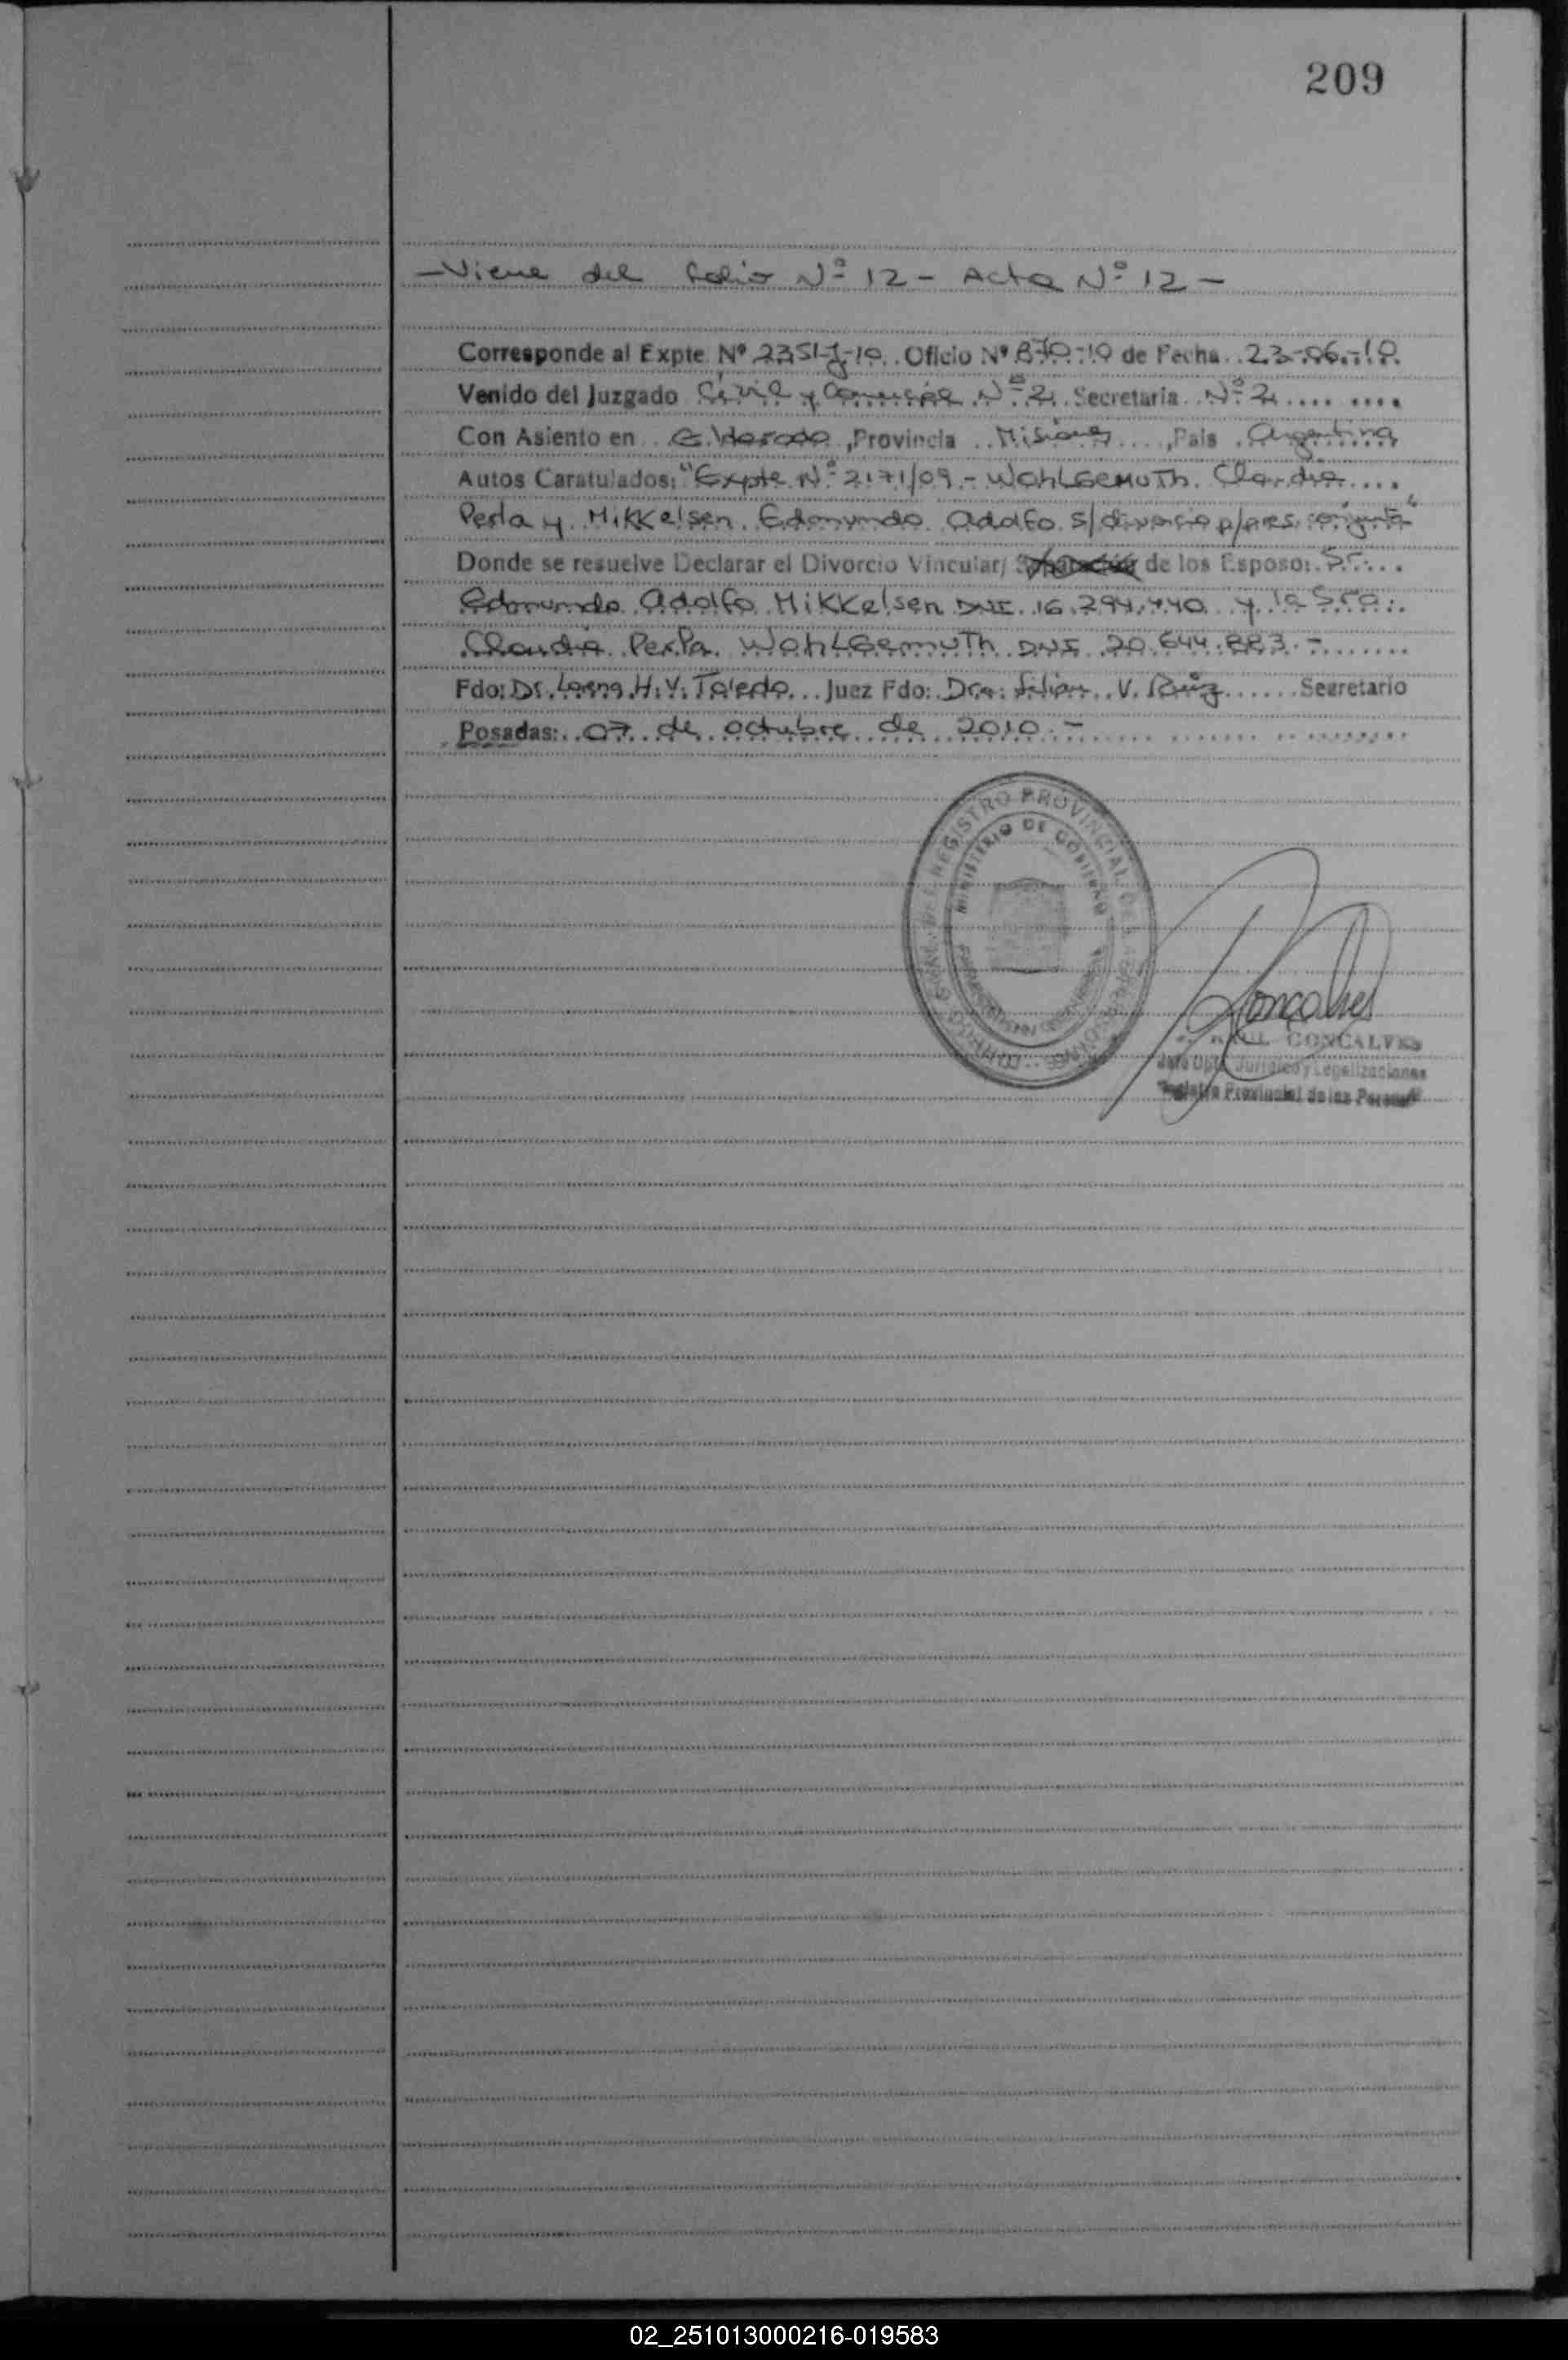 209
-Viene del folio Nº 12 - Acta Nº 12 -
Corresponde al Expte Nº 2351-J-10.. Oficio Nº 870-10 de Fecha..23-06-10.
Venido del Juzgado Civil y Comercial Nº 2. Secretaria..Nº 2.... ....
Con Asiento en ..Eldorado.,Provincia ..Misiones....,Pais .Argentina
Autos Caratulados: "Expte Nº 2171/09.- WohLGemuTh. Claudia....
Perla y Mikkelsen. Edmundo. Adolfo. s/divorcio p/pres. conjunta"
Donde se resuelve Declarar el Divorcio Vincular/ de los Esposo: Sr....
Edmundo. Adolfo Mikkelsen DNI. 16.294.440. y la Sra..
Claudia Perla. WohLGemuTh DNI 20.644.883.-........
Fdo: Dr. H.V. Toledo... Juez Fdo: Dra. Lilian.. V. Ruiz...... Secretario
Posadas:..07. de. octubre. de 2010.-
REGISTRO PROVINCIAL DE LAS PERSONAS
MINISTERIO DE GOBIERNO
Goncalves
RAUL GONCALVES
Jefe Dpto. Juridico y Legalizaciones
Registro Provincial de las Personas
02_251013000216-019583